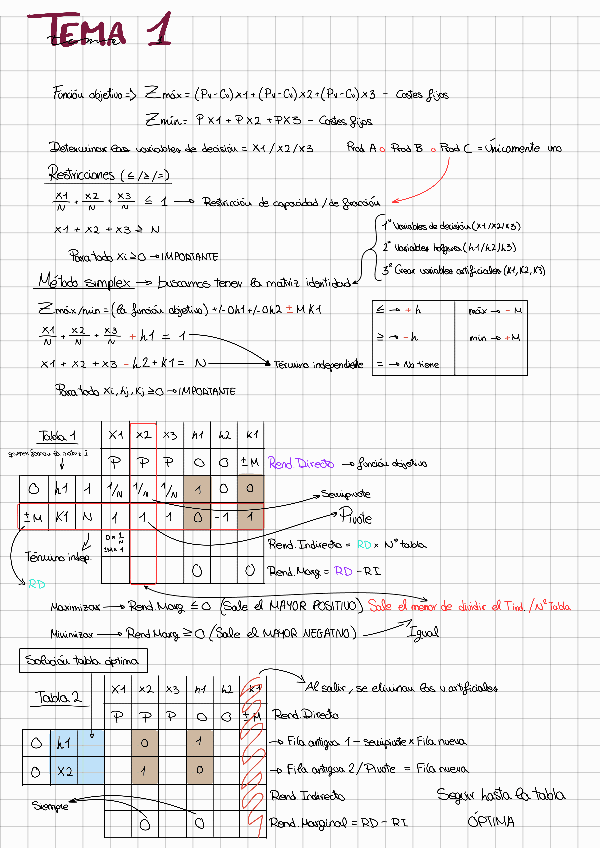 TEMA 1
Función objetivo => Z máx = (Pv-Cv)x1 + (Pv-Cv)x2 + (Pv-Cv)x3 - Costes fijos
Z mín = Px1 + Px2 + Px3 - Costes fijos
Determinar las variables de decisión = x1/x2/x3 Prod A o Prod B o Prod C = Únicamente uno
Restricciones (≤/≥/=)
x1/N + x2/N + x3/N ≤ 1 → Restricción de capacidad/de fracción
x1 + x2 + x3 ≥ N
Para todo xi ≥ 0 → IMPORTANTE
1º Variables de decisión (x1/x2/x3)
2º Variables holgura (h1/h2/h3)
3º Crear variables artificiales (K1, K2, K3)
Método simplex → buscamos tener la matriz identidad
Z máx/min = (la función objetivo) +/- 0h1 +/- 0h2 ± M K1
x1/N + x2/N + x3/N + h1 = 1
x1 + x2 + x3 - h2 + K1 = N → Término independiente
Para todo xi, hj, Kj ≥ 0 → IMPORTANTE
≤ → + h máx → - M
≥ → - h min → + M
= → No tiene
Tabla 1 x1 x2 x3 h1 h2 K1
P P P 0 0 ±M Rend Directo → función objetivo
0 h1 1 1/N 1/N 1/N 1 0 0 Semipivote
±M K1 N 1 1 1 0 -1 1 Pivote
Término indep.
RD
Rend. Indirecto = RD x Nº tabla
0 0 Rend. Marg = RD - RI
Maximizar → Rend. Marg ≤ 0 (Sale el MAYOR POSITIVO) Sale el menor de dividir el T. ind. / Nº Tabla
Minimizar → Rend Marg ≥ 0 (Sale el MAYOR NEGATIVO) Igual
Solución tabla óptima
Tabla 2 x1 x2 x3 h1 h2 K1 Al salir, se eliminan las v. artificiales
P P P 0 0 ±M Rend. Directo
0 h1 0 1 → Fila antigua 1 - semipivote x Fila nueva
0 x2 1 0 → Fila antigua 2 / Pivote = Fila nueva
Siempre
Rend Indirecto
0 0 Rend. Marginal = RD - RI
Seguir hasta la tabla
ÓPTIMA